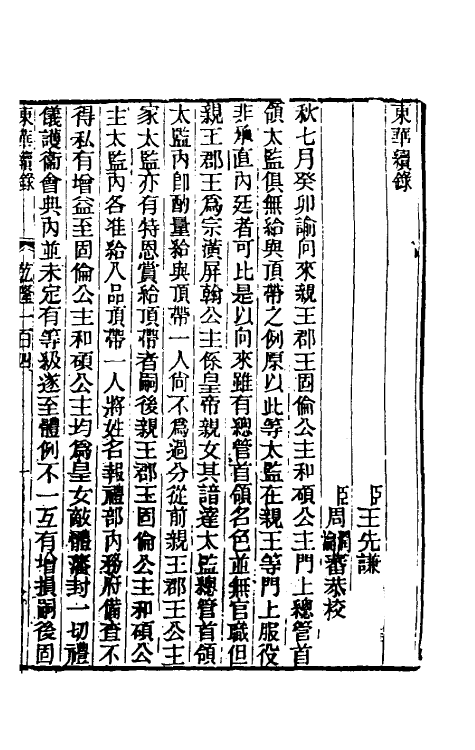 東華續錄
臣王先謙
臣周潤蕃恭校
秋七月癸卯諭向來親王郡王固倫公主和碩公主門上總管首
領太監俱無給與頂帶之例原以此等太監在親王等門上服役
非承直內廷者可比是以向來雖有總管首領名色並無官職但
親王郡王爲宗潢屏翰公主係皇帝親女其諳達太監總管首領
太監內即酌量給與頂帶一人尙不爲過分從前親王郡王公主
家太監亦有特恩賞給頂帶者嗣後親王郡王固倫公主和碩公
主太監內各准給八品頂帶一人將姓名報禮部內務府備查不
得私有增益至固倫公主和碩公主均爲皇女敵體藩封一切禮
儀護衛會典內並未定有等級遂至體例不一互有增損嗣後固
東華續錄
乾隆一百四
一